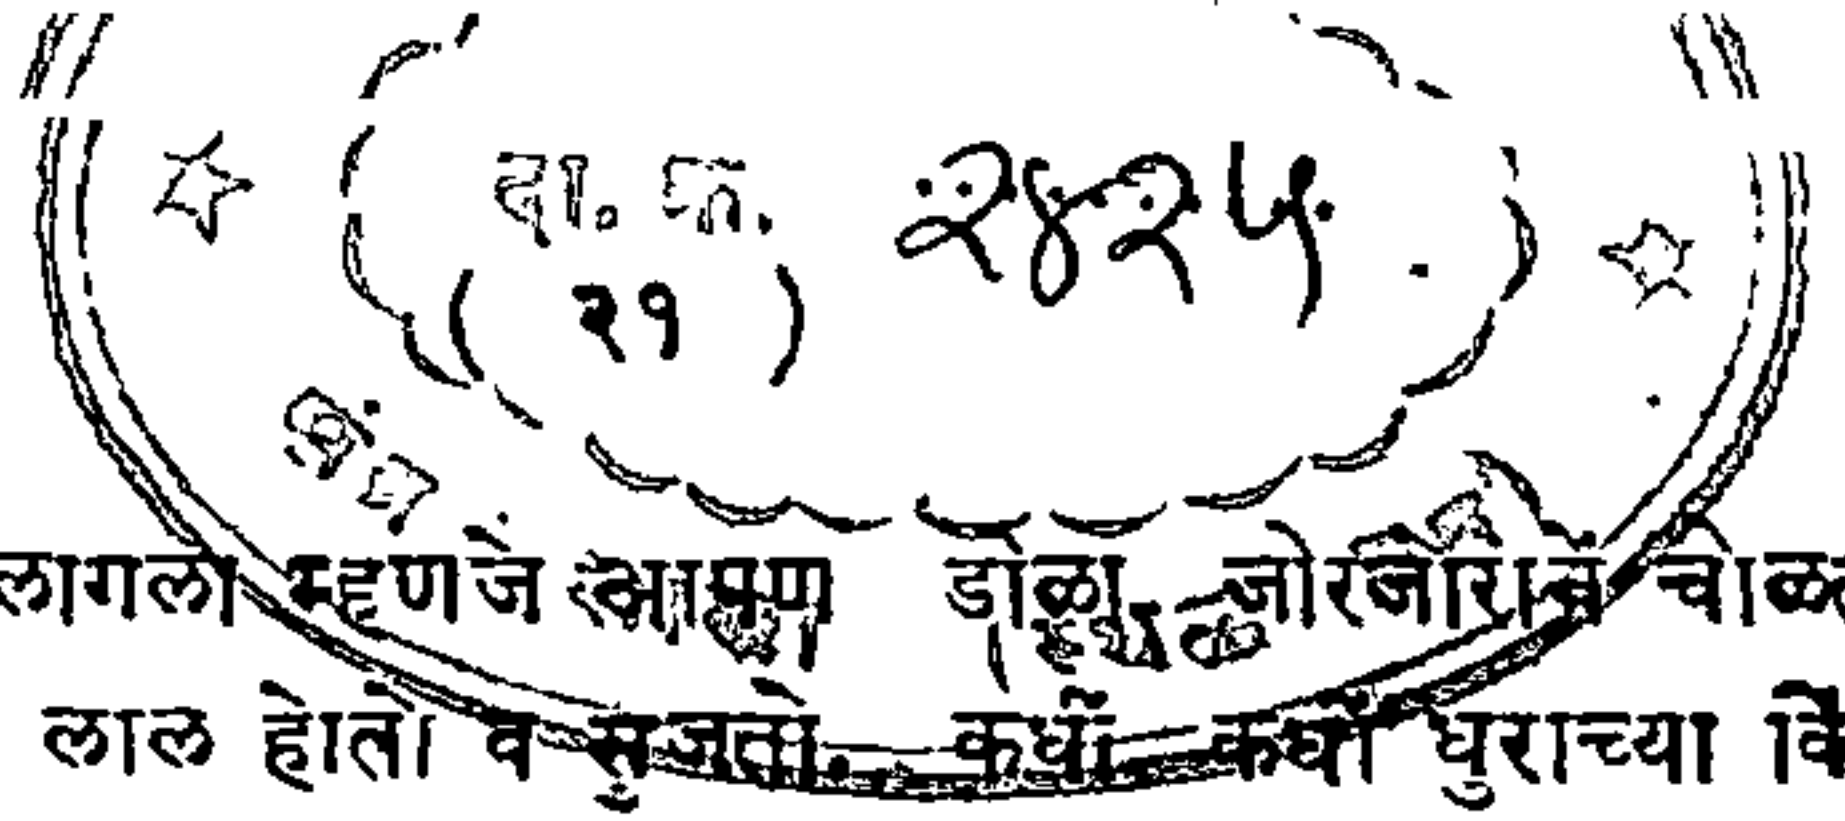 दा. क्र. २४२५
( २१ )
लागला म्हणजे आपण डोळा जोरजोरानें चोळ
लाल होतो व सुजतो. कधीं कधीं धुराच्या